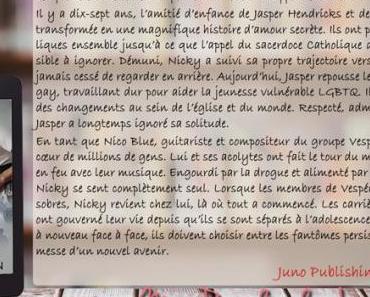 Il y a dix-sept ans, l'amitié d'enfance de Jasper Hendricks et de
transformée en une magnifique histoire d'amour secrète. Ils ont p
liques ensemble jusqu'à ce que l'appel du sacerdoce Catholique d
sible à ignorer. Démuni, Nicky a suivi sa propre trajectoire vers
jamais cessé de regarder en arrière. Aujourd'hui, Jasper repousse le
gay, travaillant dur pour aider la jeunesse vulnérable LGBTQ. Il
des changements au sein de l'église et du monde. Respecté, adm
Jasper a longtemps ignoré sa solitude.
En tant que Nico Blue, guitariste et compositeur du groupe Vesp
cœur de millions de gens. Lui et ses acolytes ont fait le tour du m
en feu avec leur musique. Engourdi par la drogue et alimenté par
Nicky se sent complètement seul. Lorsque les membres de Vespé
sobres, Nicky revient chez lui, là où tout a commencé. Les carriè
ont gouverné leur vie depuis qu'ils se sont séparés à l'adolescence
à nouveau face à face, ils doivent choisir entre les fantômes persis
messe d'un nouvel avenir.
Juno Publishin
N